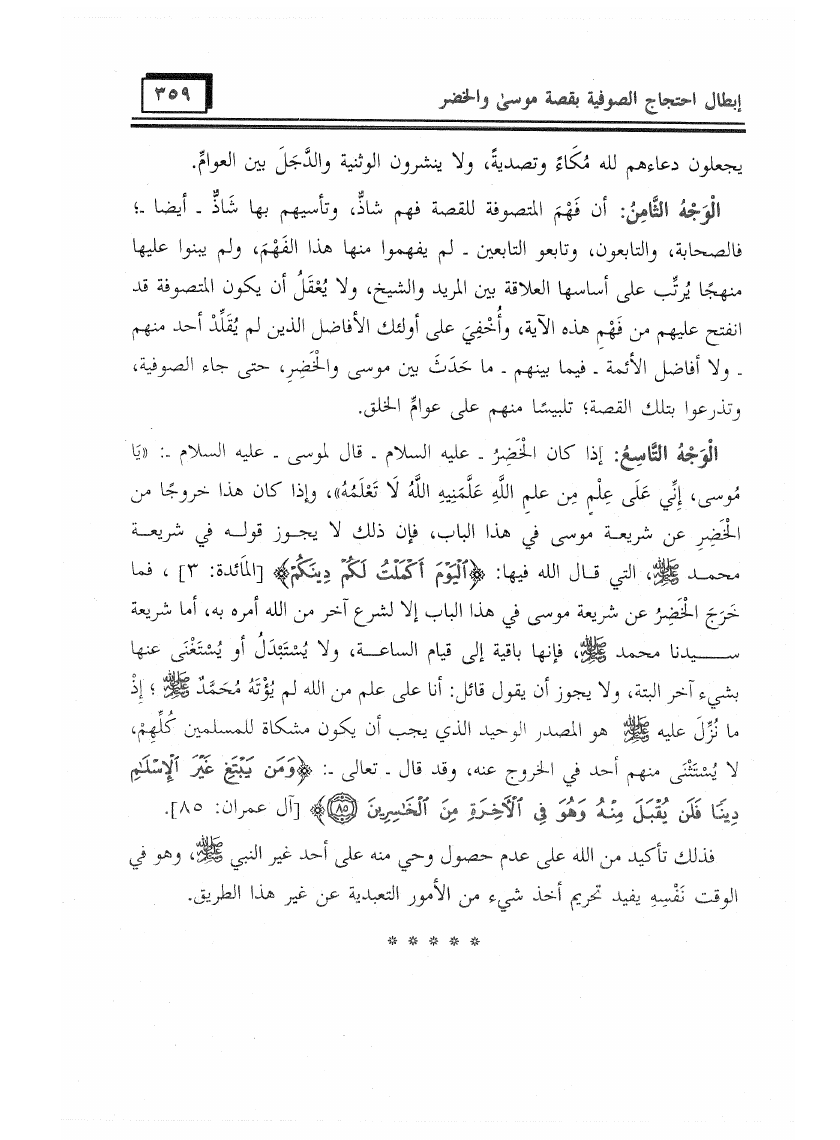 إبطال احتجاج الصوفية بقصة موسىٰ والخضر
٣٥٩
يجعلون دعاءهم لله مُكَاءً وتصديةً، ولا ينشرون الوثنية والدَّجَلَ بين العوامِّ.
الْوَجْهُ الثَّامِنُ: أن فَهْمَ المتصوفة للقصة فهم شاذٌّ، وتأسيهم بها شَاذٌّ ـ أيضا ـ؛
فالصحابة، والتابعون، وتابعو التابعين ـ لم يفهموا منها هذا الفَهْمَ، ولم يبنوا عليها
منهجًا يُرتِّب على أساسها العلاقة بين المريد والشيخ، ولا يُعْقَلُ أن يكون المتصوفة قد
انفتح عليهم من فَهْمِ هذه الآية، وأُخْفِيَ على أولئك الأفاضل الذين لم يُقَلِّدْ أحد منهم
ـ ولا أفاضل الأئمة ـ فيما بينهم ـ ما حَدَثَ بين موسى والخَضِرِ، حتى جاء الصوفية،
وتذرعوا بتلك القصة؛ تلبيسًا منهم على عوامِّ الخلق.
الْوَجْهُ التَّاسِعُ: إذا كان الخَضِرُ ـ عليه السلام ـ قال لموسى ـ عليه السلام ـ: «يَا
مُوسى، إِنِّي عَلَى عِلْمٍ مِن علمِ اللَّهِ عَلَّمَنِيهِ اللَّهُ لَا تَعْلَمُهُ»، وإذا كان هذا خروجًا من
الخَضِرِ عن شريعة موسى في هذا الباب، فإن ذلك لا يجوز قوله في شريعة
محمد ﷺ، التي قال الله فيها: ﴿ٱلۡيَوۡمَ أَكۡمَلۡتُ لَكُمۡ دِينَكُمۡ﴾ [المَائدة: ٣] ، فما
خَرَجَ الخَضِرُ عن شريعة موسى في هذا الباب إلا لشرع آخر من الله أمره به، أما شريعة
سيدنا محمد ﷺ، فإنها باقية إلى قيام الساعة، ولا يُسْتَبْدَلُ أو يُسْتَغْنَى عنها
بشيء آخر البتة، ولا يجوز أن يقول قائل: أنا على علم من الله لم يُؤْتَهُ مُحَمَّدٌ ﷺ ؛ إِذْ
ما نُزِّلَ عليه ﷺ هو المصدر الوحيد الذي يجب أن يكون مشكاة للمسلمين كُلِّهِمْ،
لا يُسْتَثْنَى منهم أحد في الخروج عنه، وقد قال ـ تعالى ـ: ﴿وَمَن يَبۡتَغِ غَيۡرَ ٱلۡإِسۡلَٰمِ
دِينٗا فَلَن يُقۡبَلَ مِنۡهُ وَهُوَ فِي ٱلۡأٓخِرَةِ مِنَ ٱلۡخَٰسِرِينَ ٨٥﴾ [آل عمران: ٨٥].
فذلك تأكيد من الله على عدم حصول وحي منه على أحد غير النبي ﷺ، وهو في
الوقت نَفْسِهِ يفيد تحريم أخذ شيء من الأمور التعبدية عن غير هذا الطريق.
* * * * *